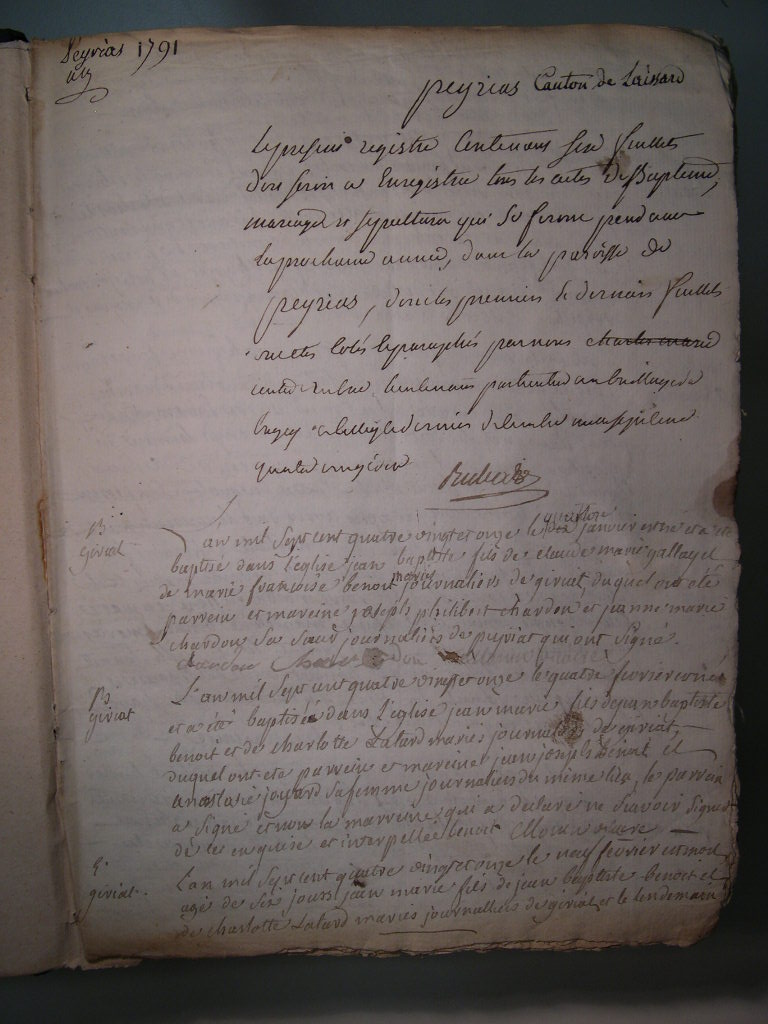 Peyrias 1791
peyrias Canton de Leissard
Le present registre Contenant six feuillets
doit servir a Enregistrer tous les actes de Bapteme,
mariage et sepulture qui se feront pendant
la prochaine année, dans la paroisse de
peyrias, dont les premier et dernier feuillets
ont etés Cotés et paraphés par nous charles marie
lieutenant particulier au bailliage de
bugey a belley le dernier decembre mil sept cent
quatre vingt dix
B
giriat
L'an mil sept cent quatre vingt et onze le quatre janvier est né et a été
baptisé dans l'église jean baptiste fils de claude marie gallay et
de marie françoise benoit mariés journaliers de giriat, duquel ont été
parrein et mareine joseph philibert chardon et jeanne marie
chardon sa sœur journaliers de peyriat qui ont signé.
B
giriat
L'an mil sept cent quatre vingt et onze le quatre fevrier est né
et a été baptisée dans l'église jean marie fils de jean baptiste
benoit et de charlotte Lalard mariés journaliers de giriat,
duquel ont été parrein et mareine jean joseph benoit et
anastasie joyard sa femme journaliers du même lieu, le parrein
a signé et non la marreine qui a declaré ne scavoir signer
de ce enquise et interpellée benoit vicaire
giriat
L'an mil sept cent quatre vingt et onze le neuf fevrier est mort
agé de six jours jean marie fils de jean baptiste benoit et
de charlotte Lalard mariés journaliers de giriat et le lendemain